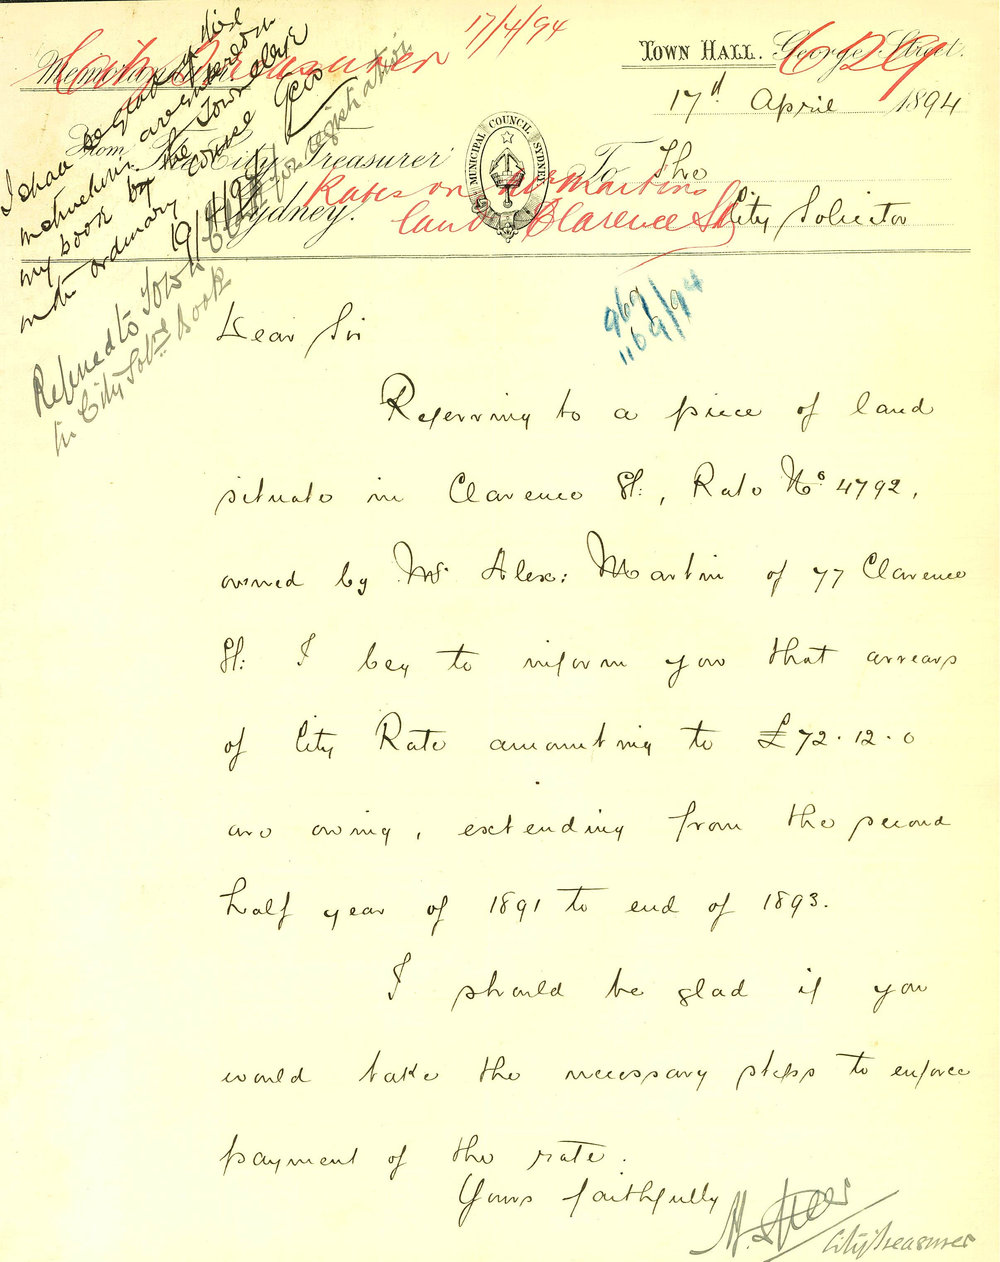 17/4/94
City Treasurer
629
Memorandum
TOWN HALL. George Street.
17th April 1894
From The City Treasurer
Sydney.
MUNICIPAL COUNCIL SYDNEY
To The
City Solicitor
Rates on Mr Martins
land Clarence St
I shall be glad if these
instructions are entered in
my book by the Town Clerk
in the ordinary course
19/4/94
Referred to Town Clerk for registration
in City Solrs Book
969
1169/94
Dear Sir
Referring to a piece of land
situate in Clarence St:, Rate No 4792,
owned by Mr Alex: Martin of 77 Clarence
St: I beg to inform you that arrears
of City Rate amounting to £72.12.0
are owing, extending from the second
half year of 1891 to end of 1893.
I should be glad if you
would take the necessary steps to enforce
payment of the rate.
Yours faithfully
City Treasurer